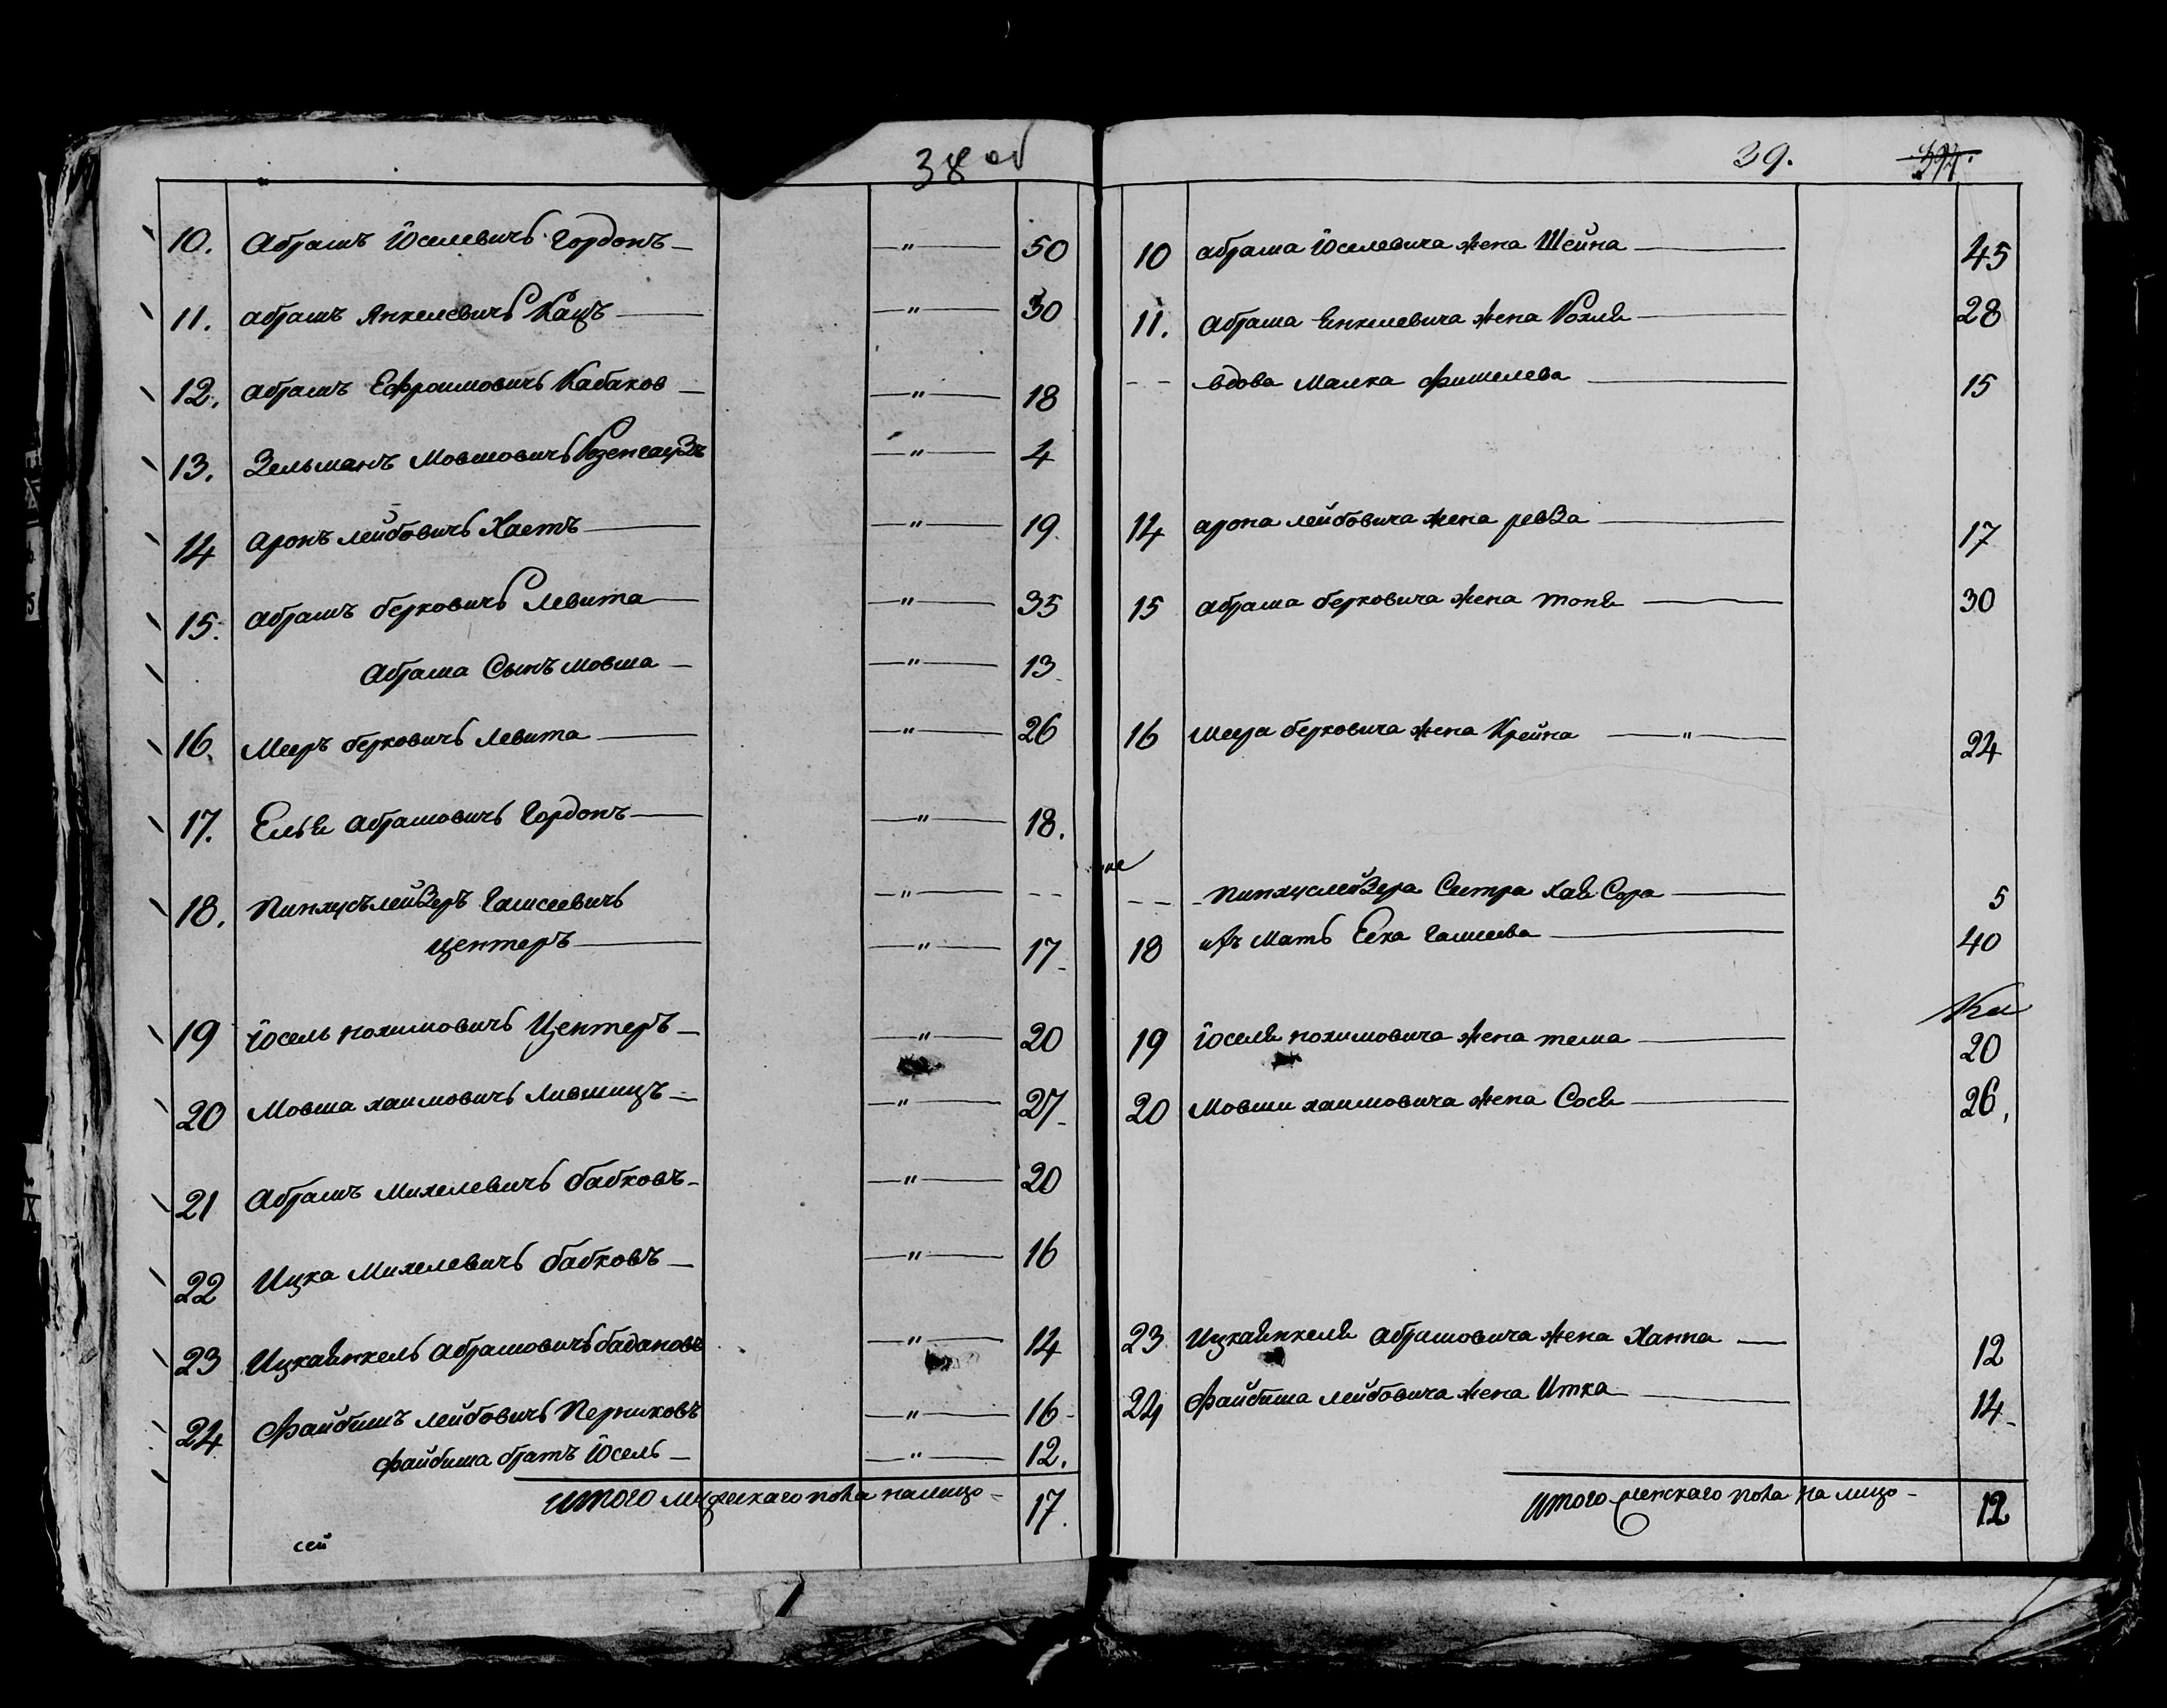 38 об
10. Абрамъ Іоселевичь Гордонъ — " — 50
11. абрамъ Янкелевичь Кацъ — " — 30
12. абрамъ Ефроимовичь Кабаков — " — 18
13. Зельманъ Мовшовичь Розенгаузъ — " — 4
14 аронъ лейбовичь Хаетъ — " — 19.
15. абрамъ берковичь Левита — " — 35
абрама Сынъ мовша — " — 13
16. Мееръ берковичь Левита — " — 26
17. Елья абрамовичь Гордонъ — " — 18.
18. Пинхусълейзеръ — " — - -
центеръ — " — 17
19 Іосель нохимовичь Центеръ — " — 20
20 Мовша хаимовичь Лившицъ — " — 27
21 Абрамъ Михелевичь бабковъ — " — 20
22 Ицка Михелевичь бабковъ — " — 16
23 Ицкаянкель абрамовичь бадановъ — " — 14
24 Файбишъ лейбовичь Перниковъ — " — 16
Файбиша братъ Іосель — " — 12.
итого мужескаго пола налицо — 17.
сей
39.
10 абрама Іоселевича жена Шейна — 45
11. Абрама Янкелевича жена Рохля — 28
- - вдова Малка Фишелева — 15
14 арона лейбовича жена ревза — 17
15 абрама берковича жена тоня — 30
16 Меера берковича жена Крейна — " — 24
- - - Пинхуслейзера Сестра Хая Сора — 5
18 ихъ Мать — 40
19 Іоселя нохимовича жена тема — 20
20 Мовши хаимовича жена Сося — 26,
23 Ицкаянкеля абрамовича жена Ханна — 12
24 Файбиша лейбовича жена Итка — 14
итого женскаго пола на лицо — 12